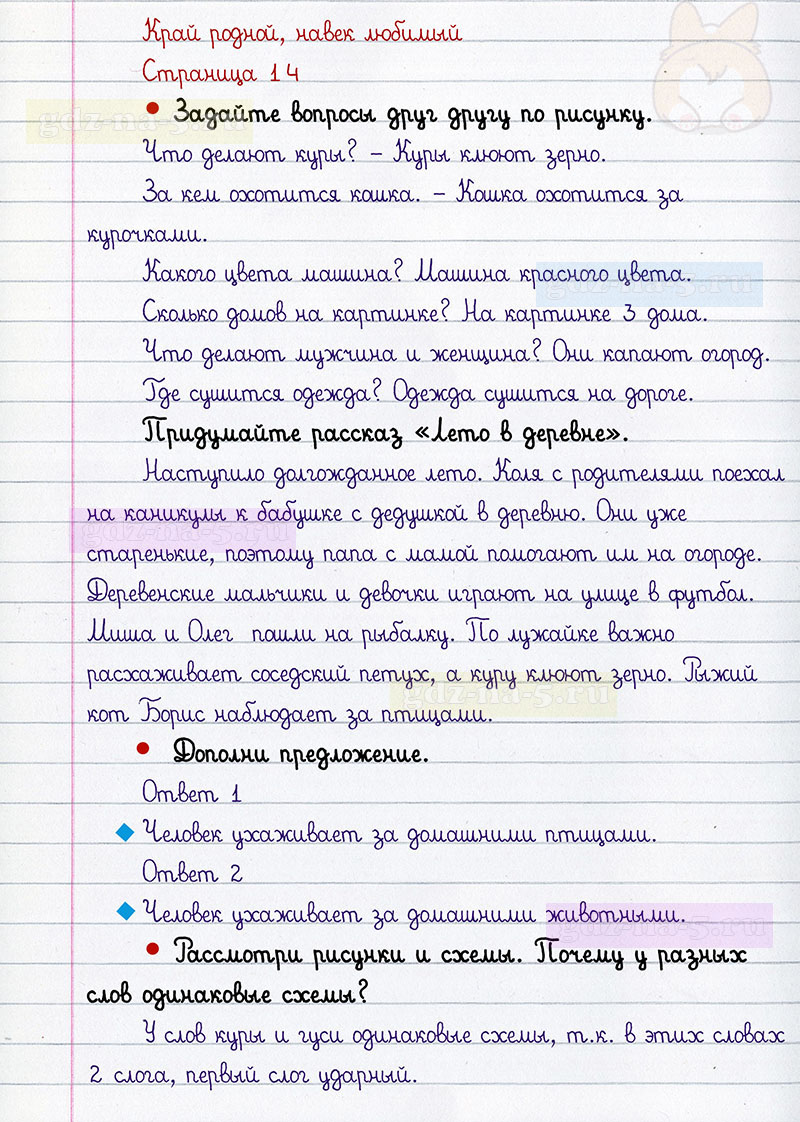 Край родной, навек любимый
Страница 14
Задайте вопросы друг другу по рисунку.
gdz-na-5.ru
Что делают куры? – Куры клюют зерно.
За кем охотится кошка. – Кошка охотится за
курочками.
Какого цвета машина? Машина красного цвета.
gdz-na-5.ru
Сколько домов на картинке? На картинке 3 дома.
Что делают мужчина и женщина? Они капают огород.
Где сушится одежда? Одежда сушится на дороге.
Придумайте рассказ «Лето в деревне».
Наступило долгожданное лето. Коля с родителями поехал
на каникулы к бабушке с дедушкой в деревню. Они уже
gdz-na-5.ru
старенькие, поэтому папа с мамой помогают им на огороде.
Деревенские мальчики и девочки играют на улице в футбол.
Миша и Олег пашли на рыбалку. По лужайке важно
расхаживает соседский петух, а куру клюют зерно. Рыжий
gdz-na-5.ru
кот Борис наблюдает за птицами.
Дополни предложение.
Ответ 1
Человек ухаживает за домашними птицами.
Ответ 2
Человек ухаживает за домашними животными.
gdz-na-5.ru
Рассмотри рисунки и схемы. Почему у разных
слов одинаковые схемы?
У слов куры и гуси одинаковые схемы, т.к. в этих словах
2 слога, первый слог ударный.